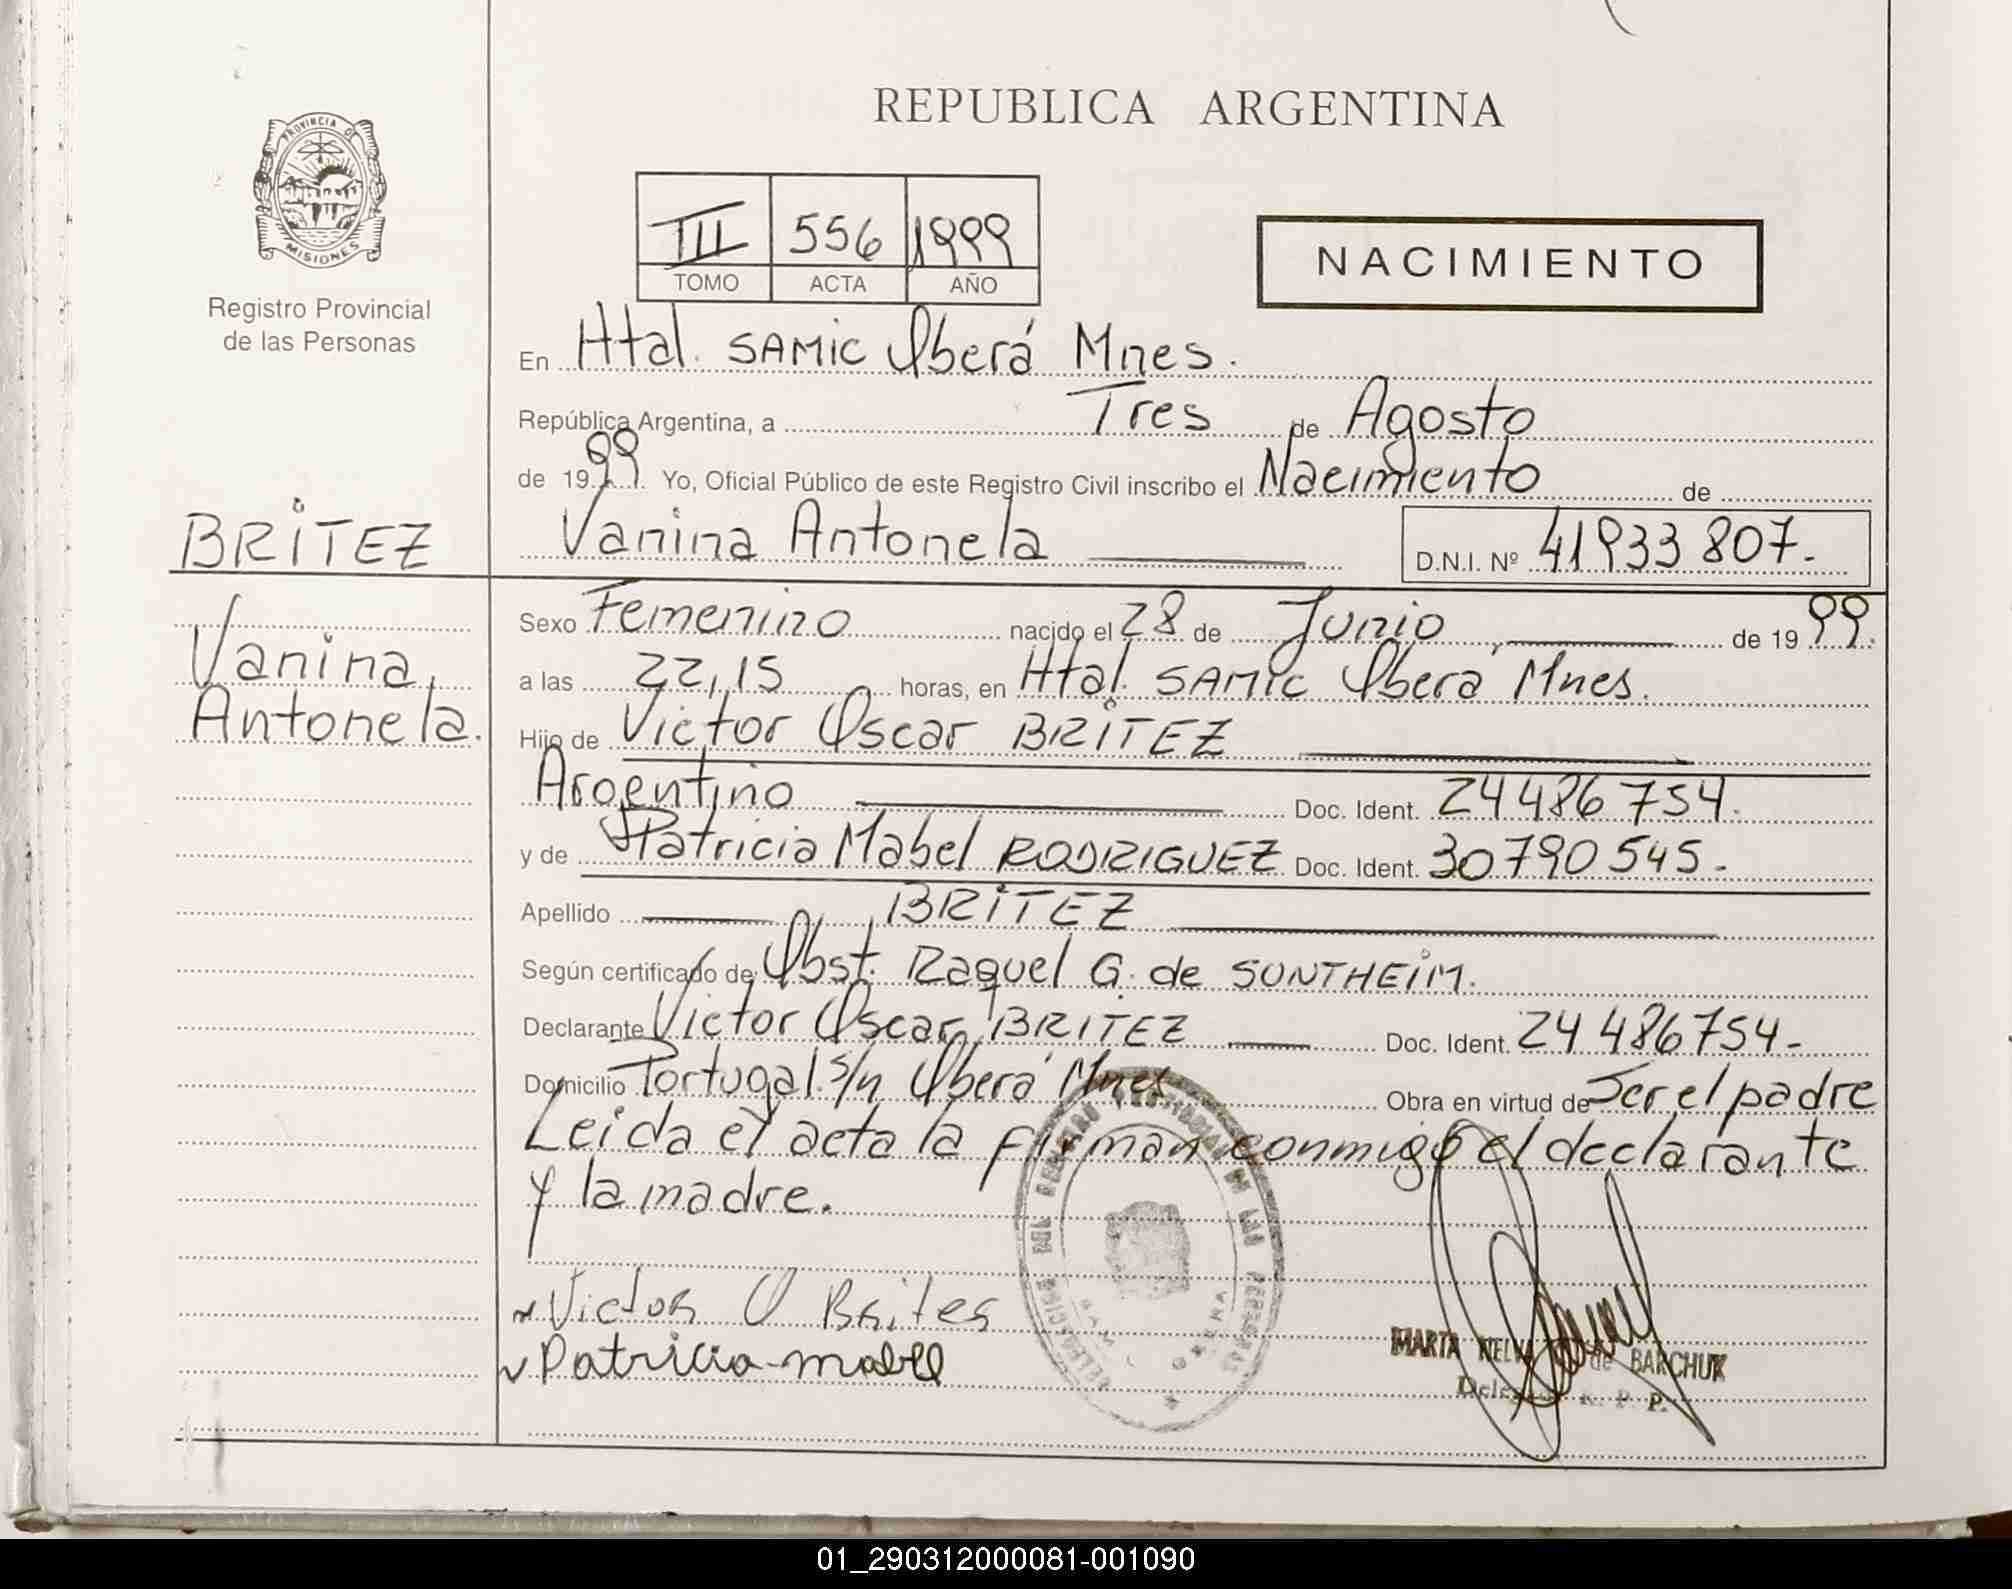 REPUBLICA ARGENTINA
PROVINCIA DE
MISIONES
Registro Provincial
de las Personas
III 556 1999
TOMO ACTA AÑO
NACIMIENTO
En Htal. SAMIC Oberá Mnes.
República Argentina, a Tres de Agosto
de 1999 Yo, Oficial Público de este Registro Civil inscribo el Nacimiento de
BRITEZ
Vanina Antonela D.N.I. Nº 41933807.
Vanina
Antonela.
Sexo Femenino nacido el 28 de Junio de 1999.
a las 22,15 horas, en Htal. SAMIC Oberá Mnes.
Hijo de Victor Oscar BRITEZ
Argentino Doc. Ident. 24486754.
y de Patricia Mabel RODRIGUEZ Doc. Ident. 30790545.-
Apellido BRITEZ
Según certificado de Obst. Raquel G. de SONTHEIM.
Declarante Victor Oscar BRITEZ Doc. Ident. 24486754-
Domicilio Portugal s/n Oberá Mnes Obra en virtud de Ser el padre
Leida el acta la firman conmigo el declarante
y la madre.
Victor O Brites
Patricia mabel
MARTA de BARCHUK
R. P. P.
01_290312000081-001090